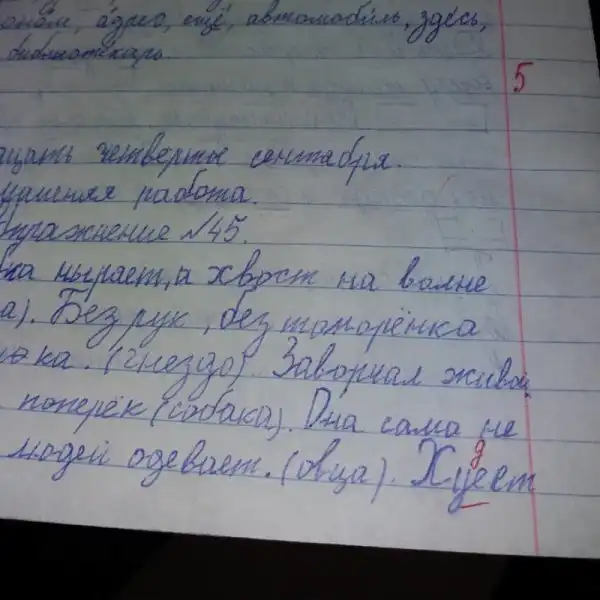 адрес, ещё, автомобиль, здесь,
библиотекарь.
5
четвертое сентября.
работа.
№45.
ныряет, а хвост на волне
а). Без рук, без топорёнка
ка. (гнездо) Заворчал живой
поперёк (собака). Она сама не
людей одевает. (овца). Хуеет
д